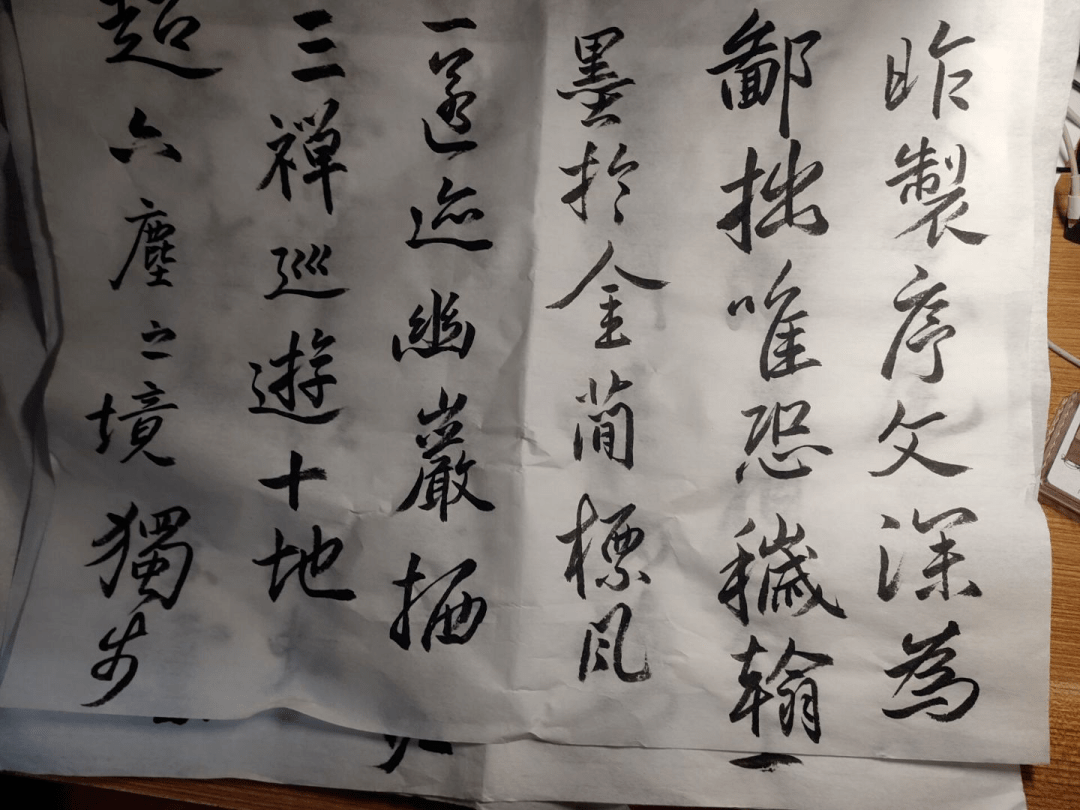 昨製序文深為
鄙拙唯恐穢翰
墨於金簡標瓦
匿迹幽巖栖
三禪巡遊十地
超六塵之境獨步